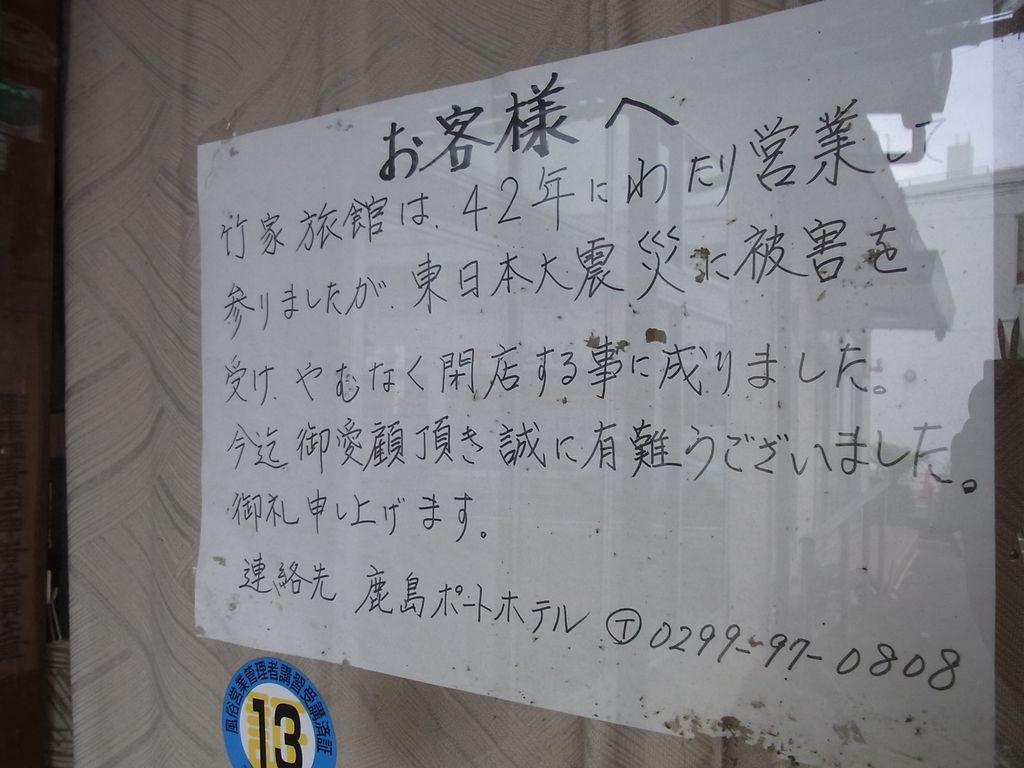 お客様へ
竹家旅館は、42年にわたり営業し
参りましたが、東日本大震災に被害を
受け、やむなく閉店する事に成りました。
今迄御愛顧頂き誠に有難うございました。
御礼申し上げます。
連絡先 鹿島ポートホテル Ⓣ0299-97-0808
風俗営業管理者講習受講済証
13